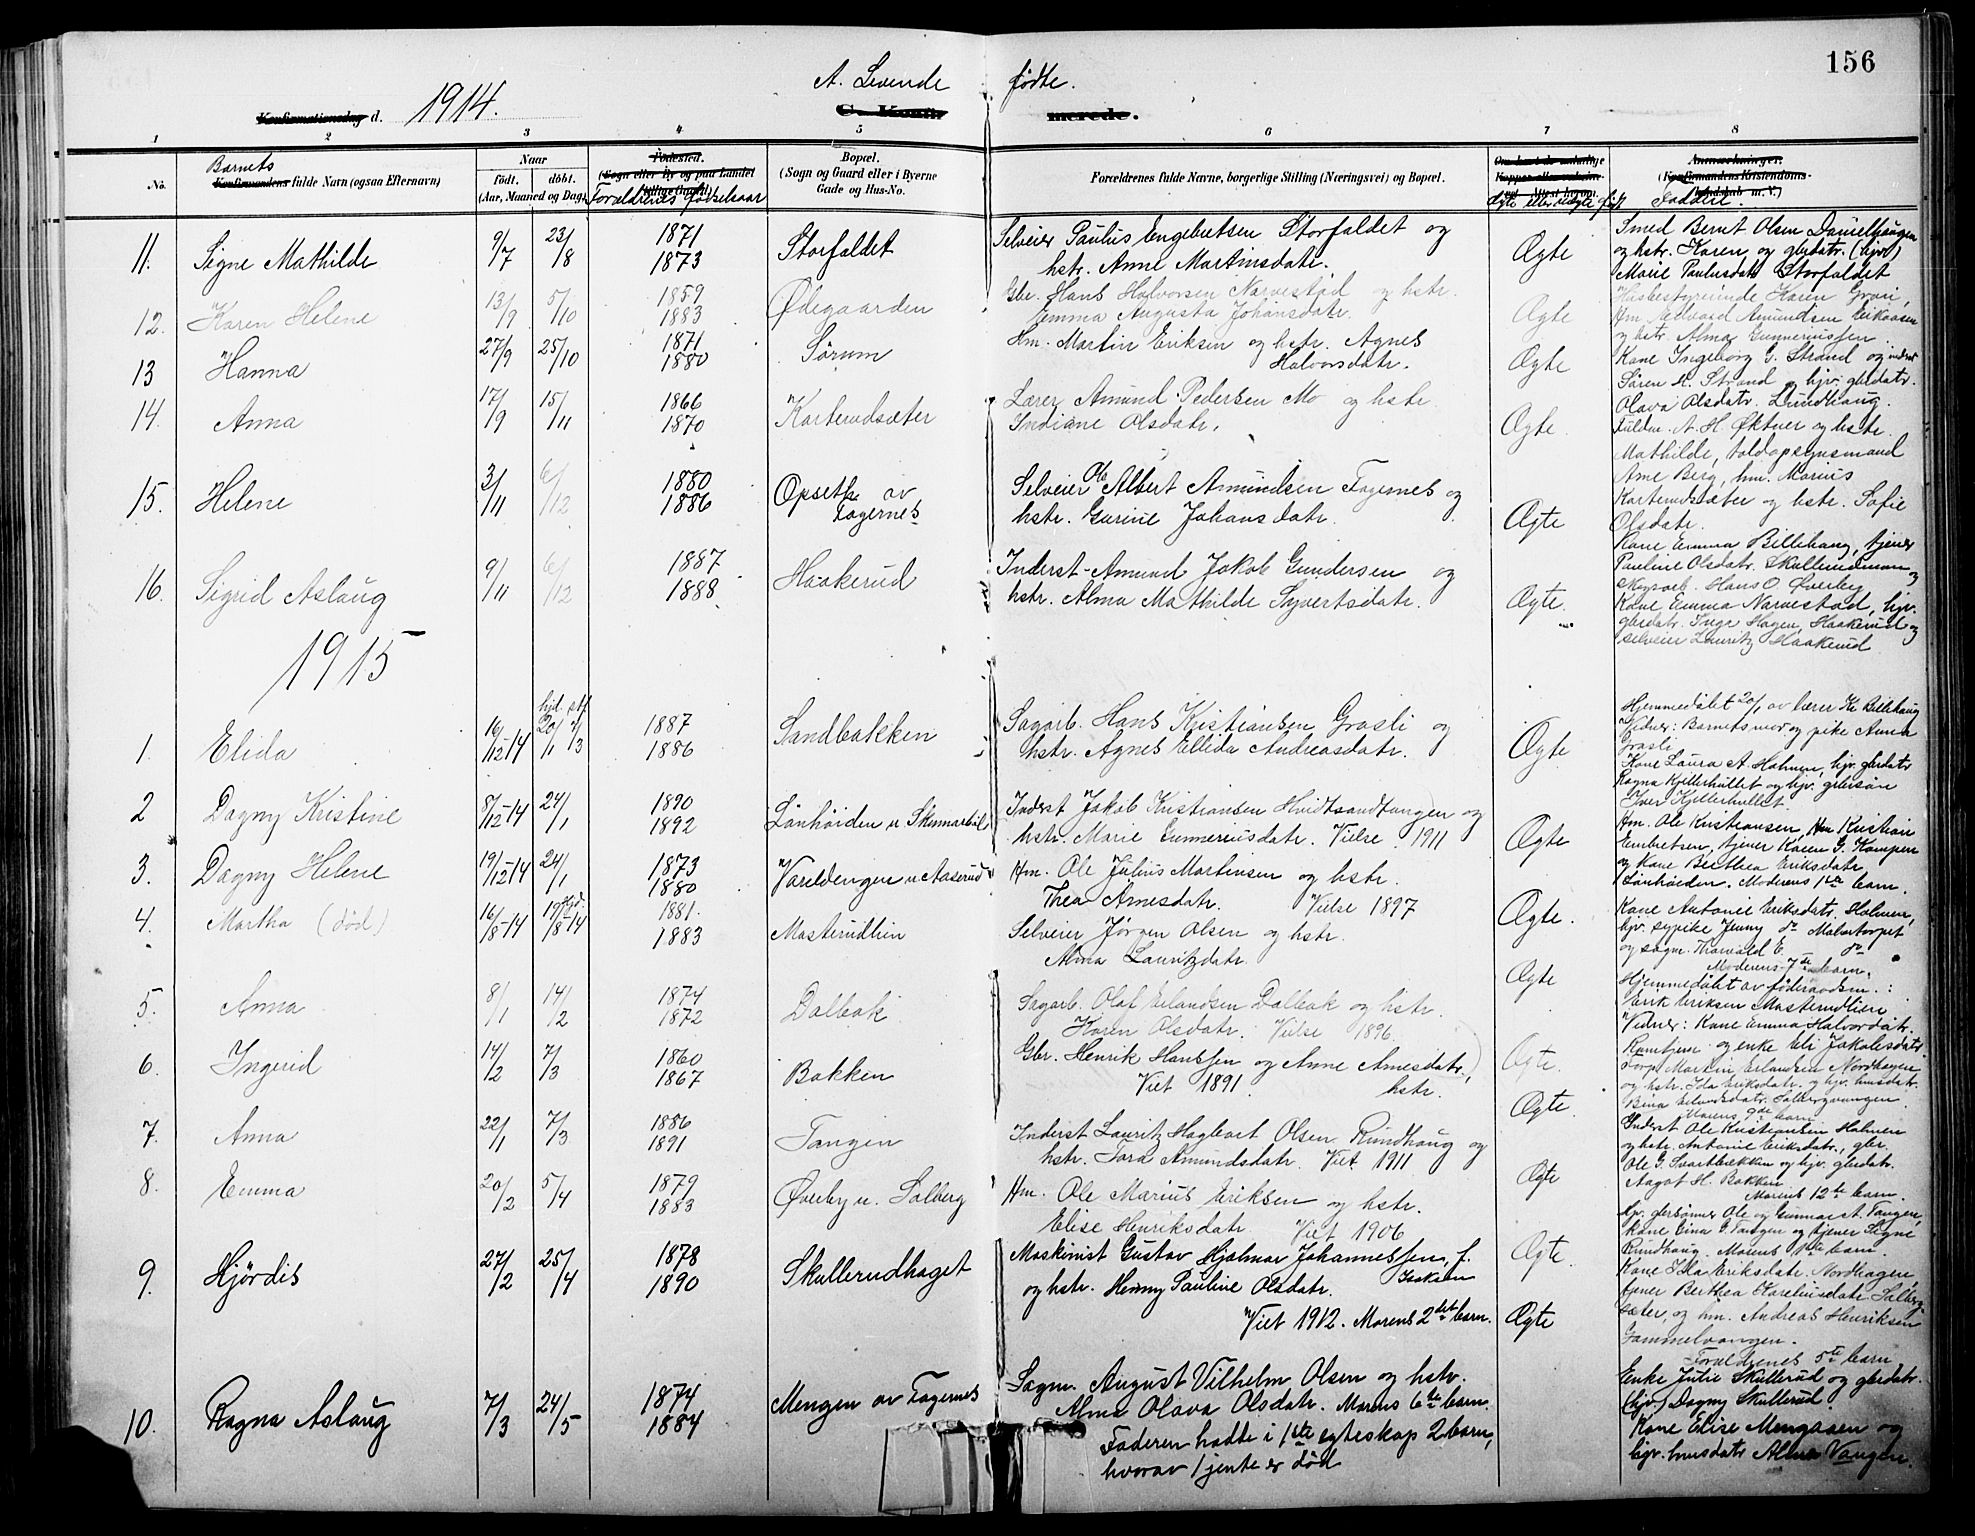 156
A. Levende fødte.
Konfirmationsdag d. 1914.
C. Konfir-merede.
1 2 3 4 5 6 7 8
No. Barnets Konfirmandens fulde Navn (ogsaa Efternavn)
Naar Født. døbt. (Aar, Maaned og Dag)
Fødested. (Sogn eller By og paa Landet tillige Gaard)
Forældrenes fødselsaar
Bopæl. (Sogn og Gaard eller i Byerne Gade og Hus-No.
Forældrenes fulde Navne, borgerlige Stilling (Næringsvei) og Bopæl.
Ægte eller uægte født
Anmærkninger. (Konfirmandens Kristendoms-kundskab m. V.)
Faddere.
11. Signe Mathilde 9/7 23/8 1871 1873 Storfaldet
Selveier Paulus Engebretsen Storfaldet og
hstr. Anne Martinsdatr. Ægte
Smed Bernt Olsen Danielhaugen
og hstr. Karen, og gbrdatr. (hjv)
Marie Paulusdatr Storfaldet
12. Karen Helene 13/9 5/10 1859 1883 Ødegaarden
Gbr. Hans Halvorsen Narvestad og hstr.
Emma Augusta Johansdatr. Ægte
Husbestyrerinde Karen
Hm Edvard Amundsen
og hstr. Alma Gunneriussen.
13 Hanna 27/9 25/10 1871 1880 Sørum
Hm. Martin Eriksen og hstr. Agnes
Halvorsdatr. Ægte
Kone Ingeborg G. Strand og
Søren A. Strand og hjv. gbrdatr.
Olava Olsdatr. Lundhaug.
14. Anna 17/9 15/11 1866 1870 Karterudsæter
Lærer Amund Pedersen Mo og hstr.
Indiane Olsdatr. Ægte.
A. H. Øktner og hstr.
Mathilde,
Arne Berg, hm. Marius
Karterudsæter og hstr. Sofie
Olsdatr.
15. Helene 3/11 6/12 1880 1886 Opseth av Fagernes
Selveier Ole Albert Amundsen Fagernes og
hstr. Gurine Johansdatr. Ægte
Kone Emma Billihaug, tjener
Pauline Olsdatr. Skullerudmoen og
Hans O. Øverby
16. Sigrid Aslaug 9/11 6/12 1887 1888 Haakerud
Inderst Amund Jakob Gundersen og
hstr. Alma Mathilde Syvertsdatr. Ægte.
Kone Emma Narvestad, hjv.
gbrdatr. Inga Hagen, Haakerud og
selveier Lauritz Haakerud
1915
1. Elida 16/12-14 hjd. 20/1 stf. 7/3 1887 1886 Sandbakken
Sagarb. Hans Kristiansen Grasli og
hstr. Agnes Ellida Andreasdatr. Ægte
Hjemmedøbt 20/1 av lærer Kr. Billihaug
Vidner: Barnets mor og pike Anna
Grasli
Kone Laura A. Holmen, hjv. gbrdatr
Ragna Kjillerhullet og hjv. gbrsøn
Iver Kjillerhullet.
2 Dagny Kristine 8/12-14 24/1 1890 1892 Lønhøiden u. Skinnarbøl
Inderst Jakob Kristiansen Hvidtsandtangen og
hstr. Marie Gunneriusdatr. Vielse 1911 Ægte
Hm. Ole Kristiansen, Hm Kristian
Embretsen, tjener Karen G. Kampen
og kone Berthea Eriksdatr
Lønhøiden. Moderens 1ste barn.
3. Dagny Helene 19/12-14 24/1 1873 1880 Vareldengen u. Aaserud
Hm. Ole Julius Martinsen og hstr.
Thea Arnesdatr. Vielse 1897 Ægte.
Kone Antonie Eriksdatr. Holmen,
hjv. sypike Jenny do Malertorpet
og sagm. Thorvald E. do
Moderens 7de barn.
4. Martha (død) 16/8-14 19/8-14 hjd. 1881. 1883 Masterudlien
Selveier Jørgen Olsen og hstr.
Alma Lauritzdatr. Ægte
Hjemmedøbt av føderaadsm.:
Erik Eriksen Masterudlien
Vidner: Kone Emma Halvorsdatr.
og enke Eli Jakobsdatr
5. Anna 8/1 14/2 1874 1872 Dalbak
Sagarb. Olaf Erlandsen Dalbak og hstr.
Karen Olsdatr. Vielse 1896. Ægte.
Martin Erlandsen Nordhagen
og hstr. Ida Eriksdatr. og hjv. husdatr.
Bina Erlandsdatr. Solbergvangen.
Morens 9de barn
6. Ingerid 14/2 7/3 1860 1867 Bakken
Gbr. Henrik Hanssen og Anne Arnesdatr.,
Viet 1891. hstr. Ægte.
Inderst Ole Kristiansen Holmen
og hstr. Antonie Eriksdatr., gbr.
Ole G. Svartbækken og hjv. gbrdatr.
Aagot H. Bakken.
Morens 12te barn.
7. Anna 22/1 7/3 1886 1891 Tangen
Inderst Lauritz Hagbart Olsen Rundhaug og
hstr. Tora Amundsdatr. Viet 1911 Ægte
hjv. gbrsønner Ole og Gunnar st. Tangen,
Kone Eina G. Tangen og tjener Signe
Rundhaug. Morens 1ste barn.
8. Emma 20/2 5/4 1879 1883 Øverby u. Solberg
Hm. Ole Marius Eriksen og hstr.
Elise Henriksdatr Viet 1906 Ægte.
Kone Ida Eriksdatr. Nordhagen,
tjener Berthea Karelinsdatr Solberg-
sæter, og hm. Andreas Henriksen
Gammelvangen.
Forældrenes 5te barn
9. Hjørdis 27/2 25/4 1878 1890 Skullerudhaget
Maskinist Gustav Hjalmar Johannessen, f.
og hstr. Henny Pauline Olsdatr.
Viet 1912. Morens 2det barn. Ægte
Enke Julie Skullerud og gbrdatr.
(hjv) Dagny Skullerud
10. Ragna Aslaug 7/3 24/5 1874 1884 Mengen av Fagernes
Sagm. August Vilhelm Olsen og hstr.
Alma Olava Olsdatr. Morens 6te barn.
Faderen hadde i 1ste egteskap 2 barn,
hvorav 1 jente er død
Kone Elise Mengaaen og
hjv. husdatr Alma Vangen.